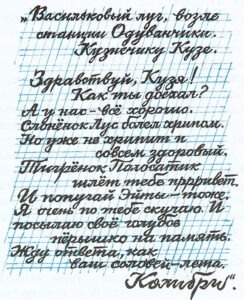 „Васильковый луг, возле
станции Одуванчики.
Кузнечику Кузе.
Здравствуй, Кузя!
Как ты доехал?
А у нас - всё хорошо.
Слонёнок Лус болел хрипом.
Но уже не хрипит и
совсем здоровый.
Тигрёнок Полосатик
шлёт тебе прррривет.
И попугай Эйты - тоже.
Я очень по тебе скучаю. И
посылаю своё голубое
пёрышко на память.
Жду ответа, как
ваш соловей - лета.
Колибри".